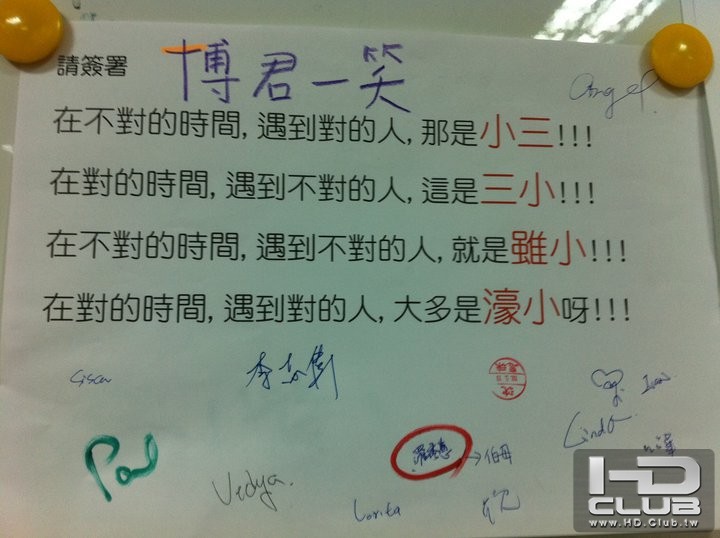 請簽署
博君一笑
Angel
在不對的時間,遇到對的人,那是小三!!!
在對的時間,遇到不對的人,這是三小!!!
在不對的時間,遇到不對的人,就是雖小!!!
在對的時間,遇到對的人,大多是濠小呀!!!
Paul
Vedya.
Lorita
→伯母
Linda
HD CLUB
www.HD.Club.tw